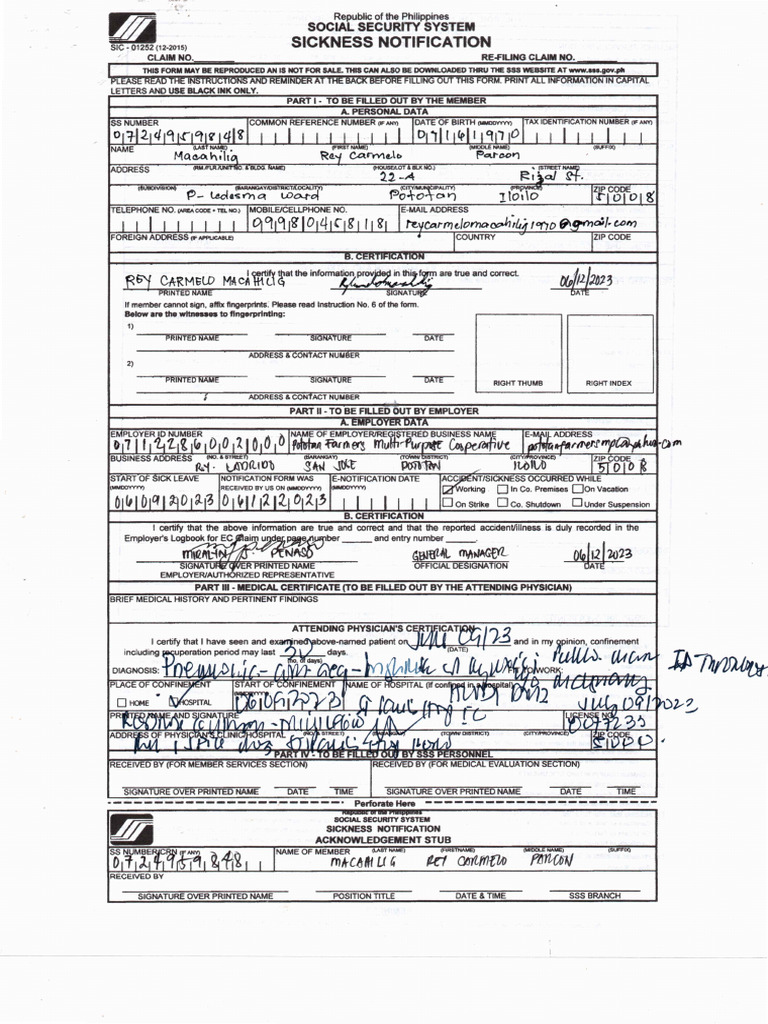 Republic of the Philippines
SOCIAL SECURITY SYSTEM
SICKNESS NOTIFICATION
SIC - 01252 (12-2015)
CLAIM NO. RE-FILING CLAIM NO.
THIS FORM MAY BE REPRODUCED AN IS NOT FOR SALE. THIS CAN ALSO BE DOWNLOADED THRU THE SSS WEBSITE AT www.sss.gov.ph
PLEASE READ THE INSTRUCTIONS AND REMINDER AT THE BACK BEFORE FILLING OUT THIS FORM. PRINT ALL INFORMATION IN CAPITAL
LETTERS AND USE BLACK INK ONLY.
PART I - TO BE FILLED OUT BY THE MEMBER
A. PERSONAL DATA
SS NUMBER COMMON REFERENCE NUMBER (IF ANY) DATE OF BIRTH (MMDDYYYY) TAX IDENTIFICATION NUMBER (IF ANY)
0724959848 07161970
NAME (LAST NAME) (FIRST NAME) (MIDDLE NAME) (SUFFIX)
Macahilig Rey Carmelo Parcon
ADDRESS (RM./FLR./UNIT NO. & BLDG. NAME) (HOUSE/LOT & BLK NO.) (STREET NAME)
22-A Rizal St.
(SUBDIVISION) (BARANGAY/DISTRICT/LOCALITY) (CITY/MUNICIPALITY) (PROVINCE) ZIP CODE
P- Ledesma Ward Pototan Iloilo 5008
TELEPHONE NO. (AREA CODE + TEL NO.) MOBILE/CELLPHONE NO. E-MAIL ADDRESS
09980458118 reycarmelomacahilig1970@gmail.com
FOREIGN ADDRESS (IF APPLICABLE) COUNTRY ZIP CODE
B. CERTIFICATION
I certify that the information provided in this form are true and correct.
REY CARMELO MACAHILIG 06/12/2023
PRINTED NAME SIGNATURE DATE
If member cannot sign, affix fingerprints. Please read Instruction No. 6 of the form.
Below are the witnesses to fingerprinting:
1)
PRINTED NAME SIGNATURE DATE
ADDRESS & CONTACT NUMBER
2)
PRINTED NAME SIGNATURE DATE RIGHT THUMB RIGHT INDEX
ADDRESS & CONTACT NUMBER
PART II - TO BE FILLED OUT BY EMPLOYER
A. EMPLOYER DATA
EMPLOYER ID NUMBER NAME OF EMPLOYER/REGISTERED BUSINESS NAME E-MAIL ADDRESS
0711228600 21000 Pototan Farmers Multi-Purpose Cooperative
BUSINESS ADDRESS (NO. & STREET) (BARANGAY) (TOWN/ DISTRICT) (CITY/PROVINCE) ZIP CODE
SAN JOSE POTOTAN ILOILO 5008
START OF SICK LEAVE NOTIFICATION FORM WAS E-NOTIFICATION DATE ACCIDENT/SICKNESS OCCURRED WHILE
(MMDDYYYY) RECEIVED BY US ON (MMDDYYYY) (MMDDYYYY) Working In Co. Premises On Vacation
06092023 06122023 On Strike Co. Shutdown Under Suspension
B. CERTIFICATION
I certify that the above information are true and correct and that the reported accident/illness is duly recorded in the
Employer's Logbook for EC Claim under page number and entry number .
PENASO GENERAL MANAGER 06/12/2023
SIGNATURE OVER PRINTED NAME OFFICIAL DESIGNATION DATE
EMPLOYER/AUTHORIZED REPRESENTATIVE
PART III - MEDICAL CERTIFICATE (TO BE FILLED OUT BY THE ATTENDING PHYSICIAN)
BRIEF MEDICAL HISTORY AND PERTINENT FINDINGS
ATTENDING PHYSICIAN'S CERTIFICATION
I certify that I have seen and examined above-named patient on 09/23 and in my opinion, confinement
(DATE)
including recuperation period may last days.
(no. of days)
DIAGNOSIS: WORK:
PLACE OF CONFINEMENT START OF CONFINEMENT NAME OF HOSPITAL (If confined in hospital)
HOME HOSPITAL
PRINTED NAME AND SIGNATURE LICENSE NO.
0077233
ADDRESS OF PHYSICIAN'S CLINIC/HOSPITAL (NO. & STREET) (BARANGAY) (TOWN/ DISTRICT) (CITY/PROVINCE) ZIP CODE
5000
PART IV - TO BE FILLED OUT BY SSS PERSONNEL
RECEIVED BY (FOR MEMBER SERVICES SECTION) RECEIVED BY (FOR MEDICAL EVALUATION SECTION)
SIGNATURE OVER PRINTED NAME DATE TIME SIGNATURE OVER PRINTED NAME DATE TIME
Perforate Here
Republic of the Philippines
SOCIAL SECURITY SYSTEM
SICKNESS NOTIFICATION
ACKNOWLEDGEMENT STUB
SS NUMBER/CRN (IF ANY) NAME OF MEMBER (LAST NAME) (FIRSTNAME) (MIDDLE NAME) (SUFFIX)
0724959848 MACAHILIG REY CARMELO PARCON
RECEIVED BY
SIGNATURE OVER PRINTED NAME POSITION TITLE DATE & TIME SSS BRANCH